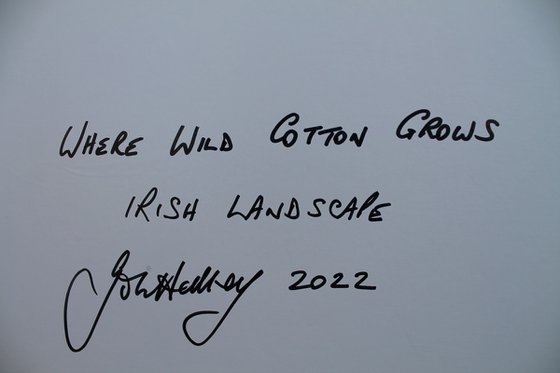 WHERE WILD COTTON GROWS
IRISH LANDSCAPE
John Halkey 2022